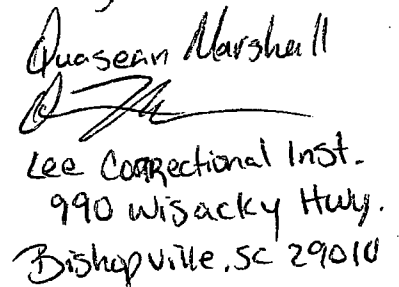 Quasean Marshall
Lee Correctional Inst.
990 Wisacky Hwy.
Bishopville, SC 29010